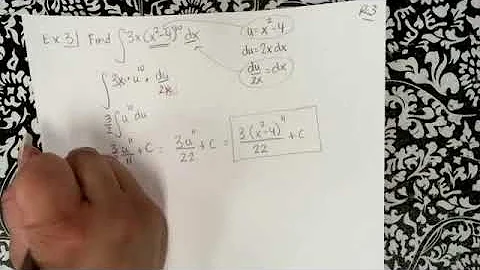 Ex 3| Find ∫3x(x²-4)¹⁰dx
u=x²-4
du=2xdx
du/2x=dx
∫3x·u¹⁰·du/2x
3/2∫u¹⁰du
3u¹¹/11+C = 3u¹¹/22+C = 3(x²-4)¹¹/22+C